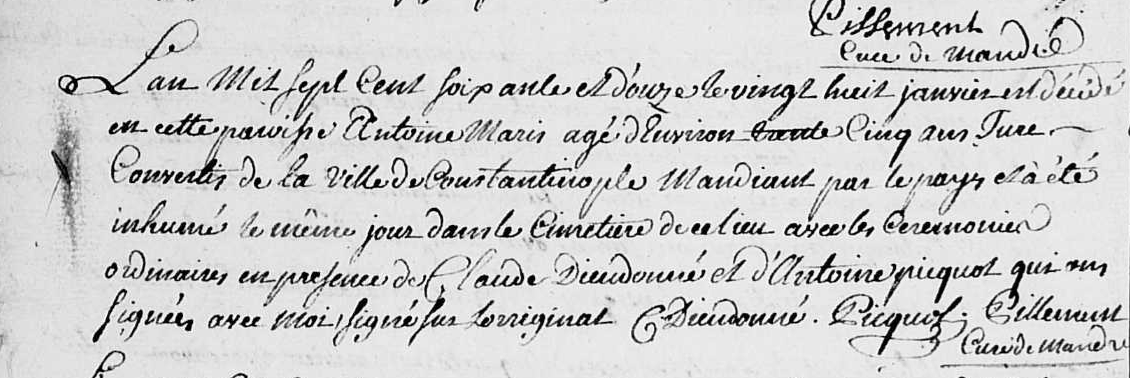 Pillement
Curé de Mandre
L'an Mil sept Cent soixante et douze le vingt huit janvier est décédé
en cette paroisse Antoine Maris agé d'Environ trente Cinq ans Turc
Convertis de la Ville de Constantinople Mandiant par le pays et à été
inhumé le même jour dans le Cimetière de ce lieu avec les Ceremonies
ordinaires en presence de Claude Dieudonné et d'Antoine picquot qui ons
signées avec moi, signé sur Lorriginal C Dieudonné. Picquot. Pillement
Curé de Mandre